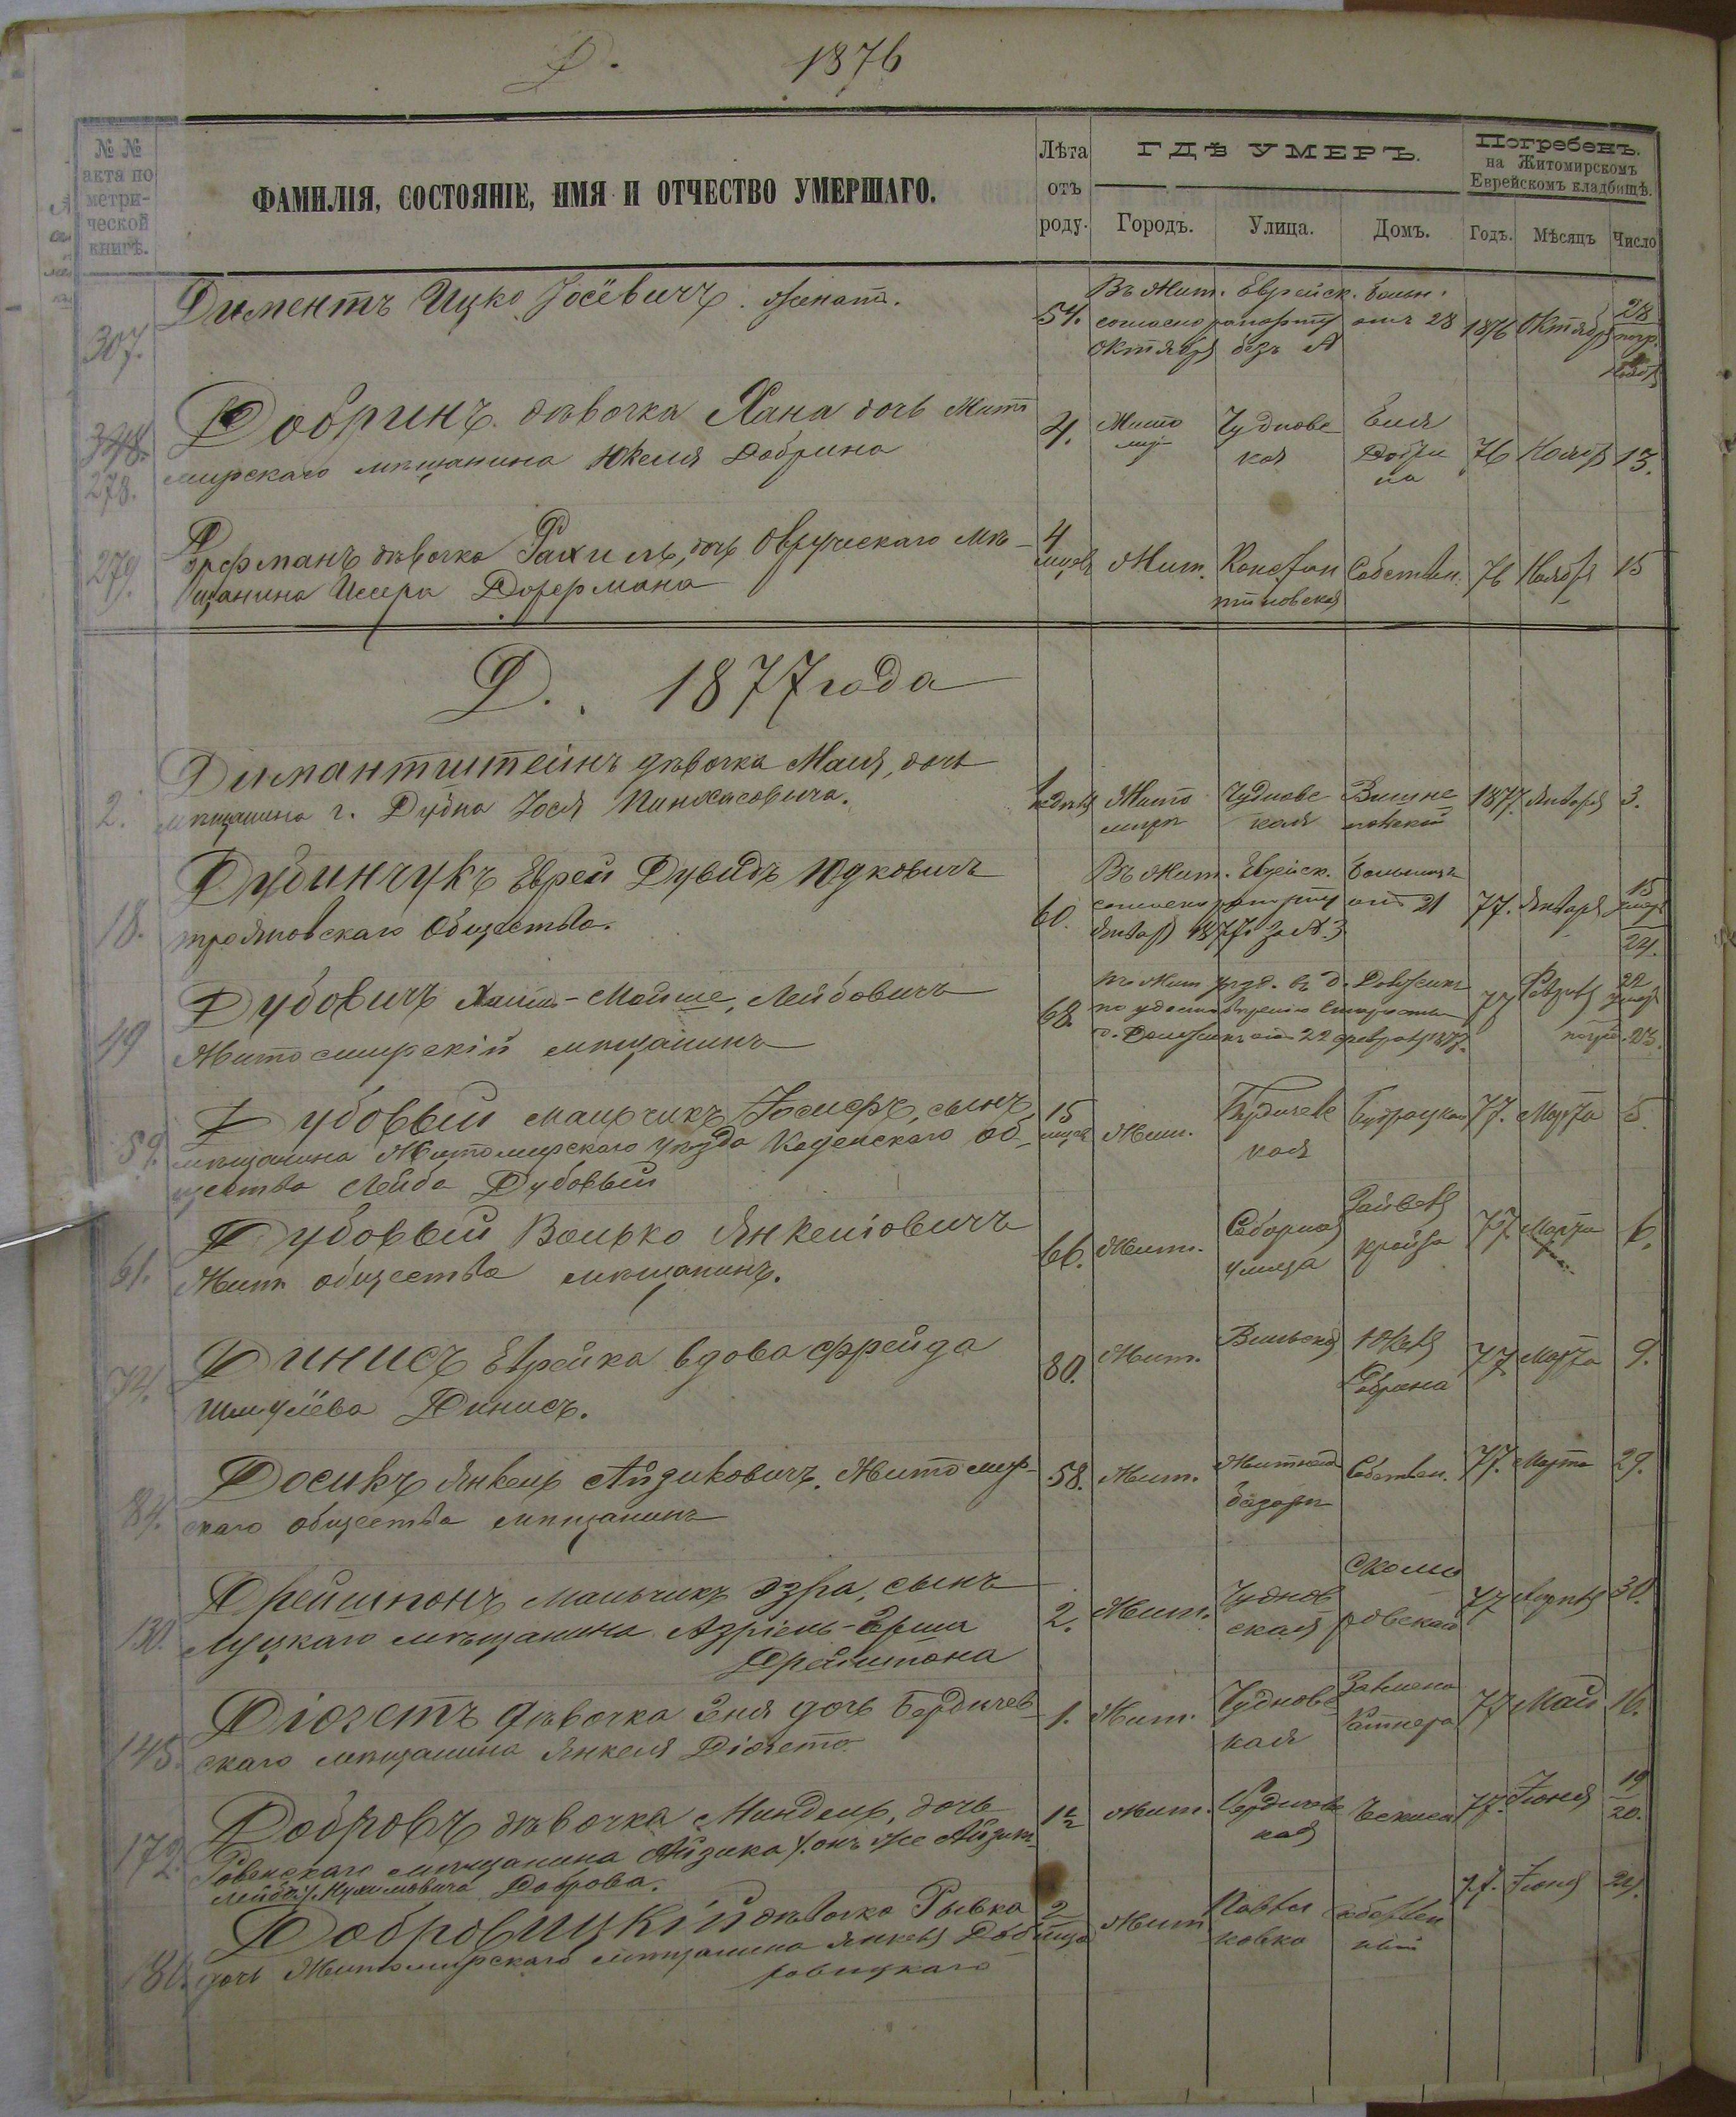 Д. 1876
№ №
акта по
метри-
ческой
книгѣ.
ФАМИЛІЯ, СОСТОЯНІЕ, ИМЯ И ОТЧЕСТВО УМЕРШАГО.
Лѣта
отъ
роду.
ГДѢ УМЕРЪ.
Городъ. Улица. Домъ.
Погребенъ.
на Житомирскомъ
Еврейскомъ кладбищѣ.
Годъ. Мѣсяцъ Число
307. Диментъ Ицко Іосёвичъ. женатъ. 54.
Въ Жит. Еврейск. больн.
согласно рапорту отъ 28
Октября безъ №
1876 Октября 28
348.
278.
Добринъ дѣвочка Хана дочь Жито
мирскаго мѣщанина Юкеля Добрина
4. Жито
мір
Чудновс
кая
Еля
Добри
на
76 Ноябр 13.
279.
Дорфманъ дѣвочка Рахиль, дочь Овручскаго мѣ-
щанина Иссера Дорфмана
4
мцев
Жит. Констан
тиновская
Собствен. 76 Ноября 15
Д. 1877 года
2. Димантштейнъ дѣвочка Маля, дочь
мѣщанина г. Дубна Іося Пинхасовича.
1
недѣля
Жито
миръ
Чудновс
кая
Вишне
повскій
1877. Января 3.
18. Дубинчукъ Еврей Дувидъ Юдковичъ
трояновскаго Общества.
60.
Въ Жит. Еврейск. больницѣ
согласно рапорту отъ 21
Января 1877 за № 3
77. Января 15
24.
49 Дубовичъ Хаимъ-Мойше, Лейбовичъ
Житомирскій мѣщанинъ
68.
въ Жит. уѣзд. въ д. Довжикъ
по удостовѣренію Старосты
д. Довжикъ отъ 22 февраля 1877.
77 Февраля 22
погреб. 23.
59. Дубовый мальчикъ Іосифъ, сынъ
мѣщанина Житомирскаго уѣзда Коденскаго об-
щества Лейба Дубовый
15
мцев
Жит. Бердичевс
кая
77. Марта 5
61. Дубовый Волько Янкеліовичъ
Жит общества мѣщанинъ.
66. Жит. Соборная
улица
Зайвеля
Крайза
77. Марта 6.
74. Динисъ Еврейка вдова Фрейда
Шмулёва Динисъ.
80. Жит. Вильская Юкеля
77 Марта 9.
84. Досикъ Янкель Айзиковичъ. Житомир-
скаго общества мѣщанинъ
58. Жит. Житный
базаръ
Собствен. 77. Марта 29.
130. Дрейшпонъ мальчикъ Эзра, сынъ
Луцкаго мѣщанина Азріель-Герша
Дрейшпона
2. Жит. Чуднов
ская
Скомо
ровскаго
77 Апрѣля 30.
145. Діогетъ дѣвочка Эня дочь Бердичев
скаго мѣщанина Янкеля Діогета
1. Жит. Чудновс
кая
Залмена
Ратнера
77 Май 16.
172. Добровъ дѣвочка Миндель, дочь
Ровенскаго мѣщанина Айзика /: онъ же Айзик-
Лейба :/ Доброва.
1½ Жит. Бердичевс
кая
77. Іюня 19
20.
180. Добровицкій дѣвочка Рывка
дочь Житомирскаго мѣщанина Янкеля Доб
ровицкаго
2
мца
Жит Павли
ковка
Собствен
ный
77. Іюня 24.